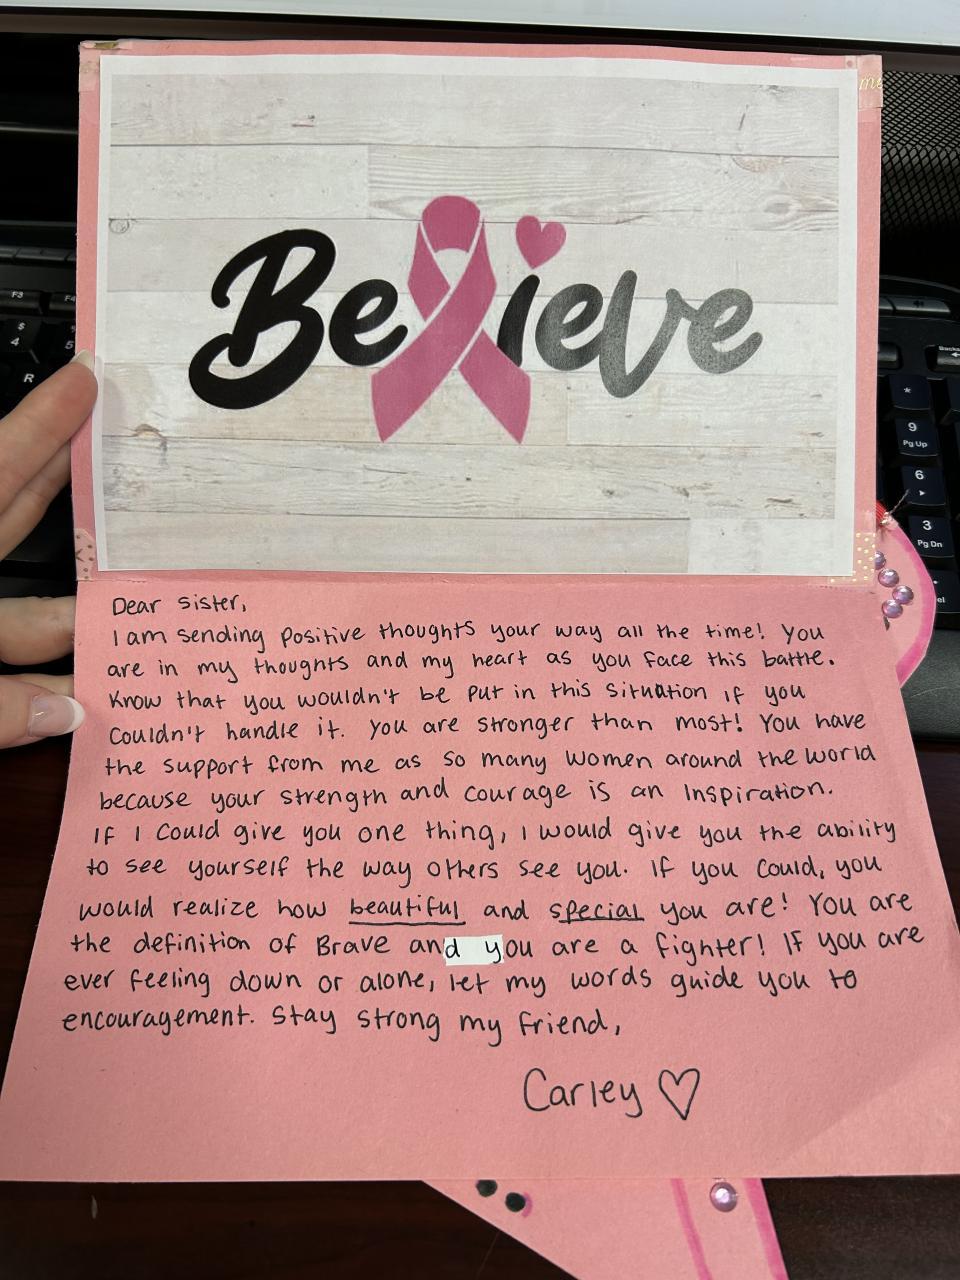 me
Believe
Dear sister,
I am sending positive thoughts your way all the time! You
are in my thoughts and my heart as you face this battle.
Know that you wouldn't be put in this situation if you
couldn't handle it. You are stronger than most! You have
the support from me as so many women around the world
because your strength and courage is an inspiration.
If I could give you one thing, I would give you the ability
to see yourself the way others see you. If you could, you
would realize how beautiful and special you are! You are
the definition of Brave and you are a fighter! If you are
ever feeling down or alone, let my words guide you to
encouragement. Stay strong my friend,
Carley ♡
F3
F4
$
4
5
R
Backs
*
9
Pg Up
6
3
Pg Dn
el